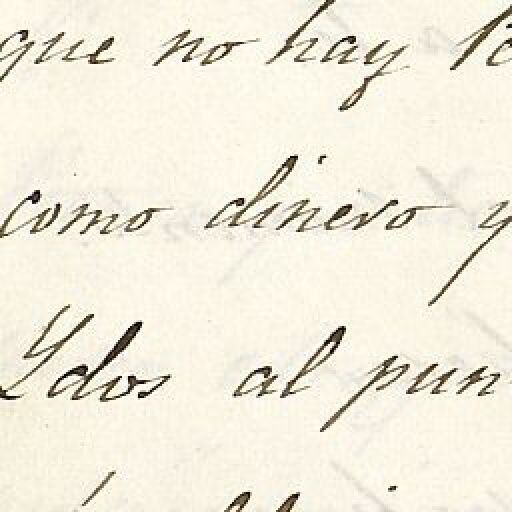 que no hay
como dinero y
Ydos al pun